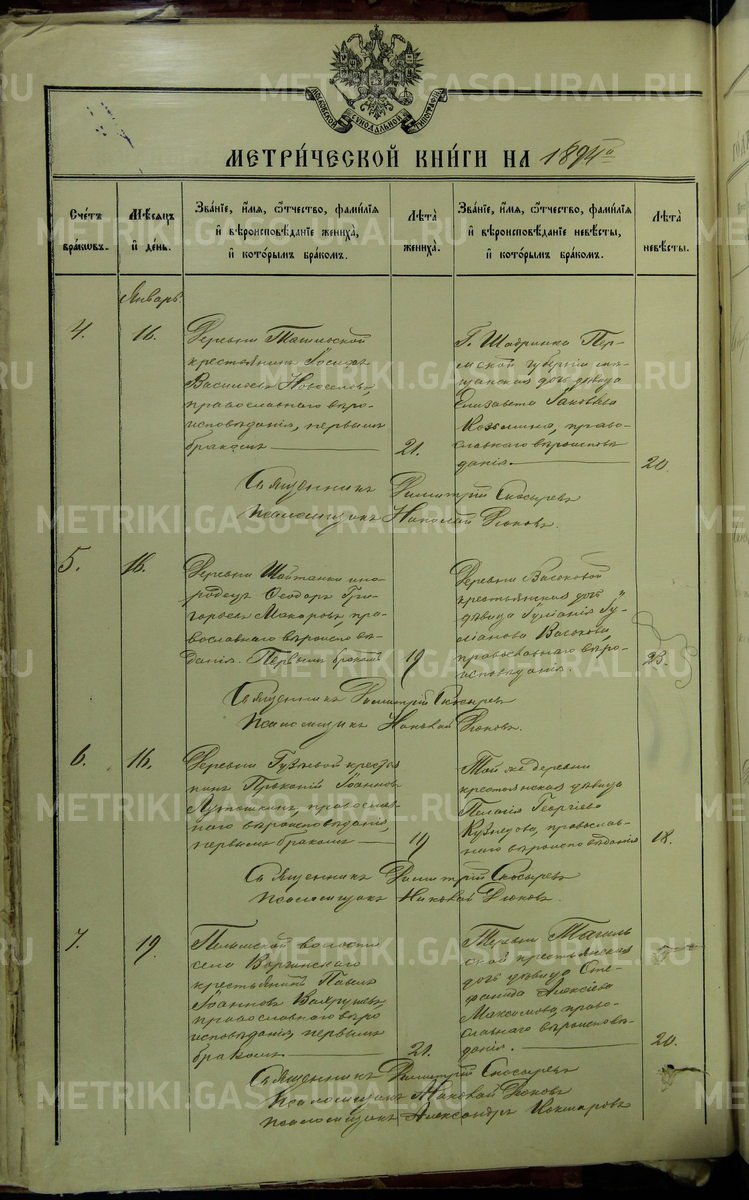 МОСКОВСКОЙ СѴНОДАЛЬНОЙ ТИПОГРАФІИ
МЕТРИ́ЧЕСКОЙ КНИ́ГИ НА 1894 го
Сче́тъ бра́кѡвъ.
Мѣ́сяцъ и҆ де́нь.
Зва́нїе, и҆́мя, ѻ҆́тчество, фами́лїѧ
и҆ вѣроисповѣ́данїе жениха̀,
и҆ кото́рымъ бра́комъ.
Лѣ́та жениха̀.
Зва́нїе, и҆́мя, ѻ҆́тчество, фами́лїѧ
и҆ вѣроисповѣ́данїе невѣ́сты,
и҆ кото́рымъ бра́комъ.
Лѣ́та невѣ́сты.
Январь.
4.
16.
Деревни Ташльской
крестьянинъ Іосифъ
Васильевъ Новоселовъ,
православнаго вѣро-
исповѣданія, первымъ
бракомъ
21.
Г. Шадринска Пер-
мской губерніи мѣ-
щанская дочь дѣвица
Елизавета Іаковлева
Козьмина, право-
славнаго вѣроисповѣ-
данія.
20.
Священникъ Димитрій Скосыревъ
Псаломщикъ Николай Дюковъ.
5.
16.
Деревни Шайтанки ино-
родецъ Ѳеодоръ Гри-
горьевъ Макаровъ, пра-
вославнаго вѣроисповѣ-
данія. Первымъ бракомъ
19
Деревни Васьковой
крестьянская дочь
дѣвица Іуліанія Іу-
ліанова Васькова,
православнаго вѣро-
исповѣданія.
23.
Священникъ Димитрій Скосыревъ
Псаломщикъ Николай Дюковъ.
6.
16.
Деревни Гузѣевой крестья-
нинъ Прокопій Іоанновъ
православ-
наго вѣроисповѣданія,
первымъ бракомъ
19
Той же деревни
крестьянская дѣвица
Пелагія Георгіева
Кузнецова, православ-
наго вѣроисповѣданія
18.
Священникъ Димитрій Скосыревъ
Псаломщикъ Николай Дюковъ.
7.
19.
волости
села
крестьянинъ Павелъ
Іоанновъ Вахрушевъ,
православнаго вѣро
исповѣданія, первымъ
бракомъ
21.
Тагиль
ская крестьянская
дочь дѣвица Сте-
фанида Алексіева
Максимова, право-
славнаго вѣроисповѣ-
данія.
20.
Священникъ Димитрій Скосыревъ
Псаломщикъ Николай Дюковъ
Псаломщикъ Александръ Кокшаровъ
METRIKI.GASO-URAL.RU